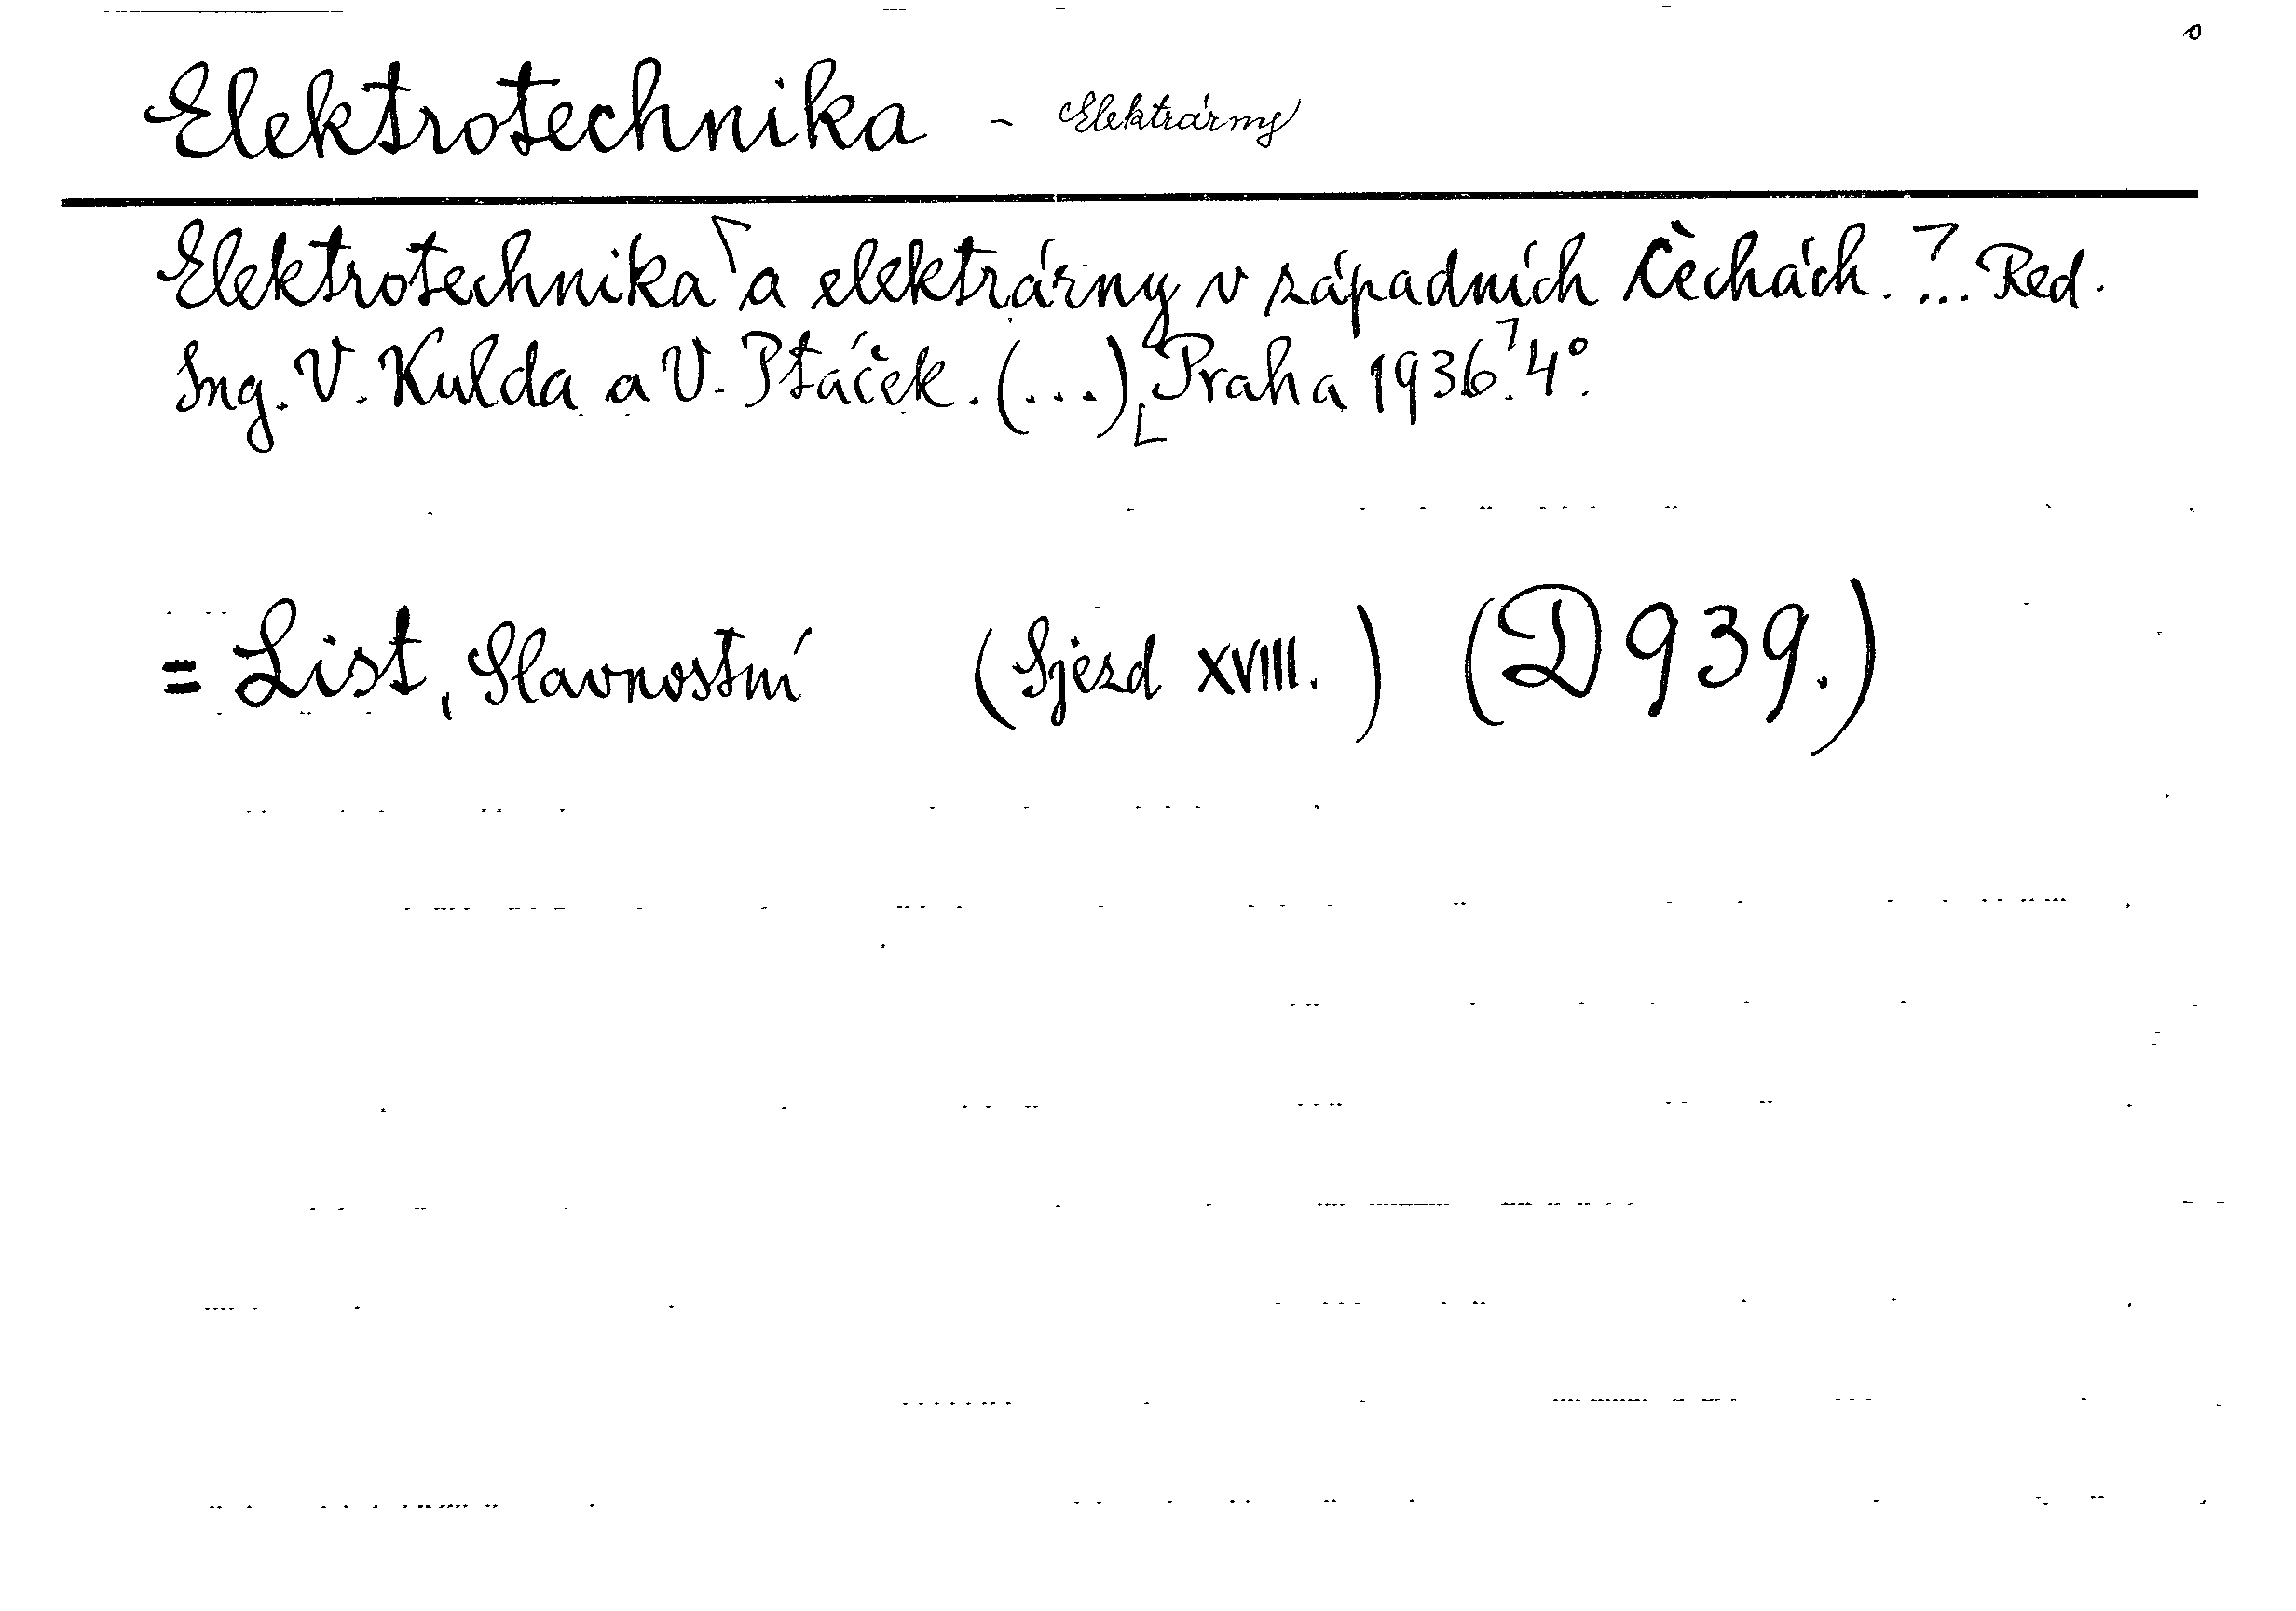 Elektrotechnika - Elektrárny
Elektrotechnika a elektrárny v západních Čechách. ... Red.
Ing. V. Kulda a V. Ptáček. (...) Praha 1936. 4°.
= List, Slavnostní (Sjezd XVIII.) (D 939.)